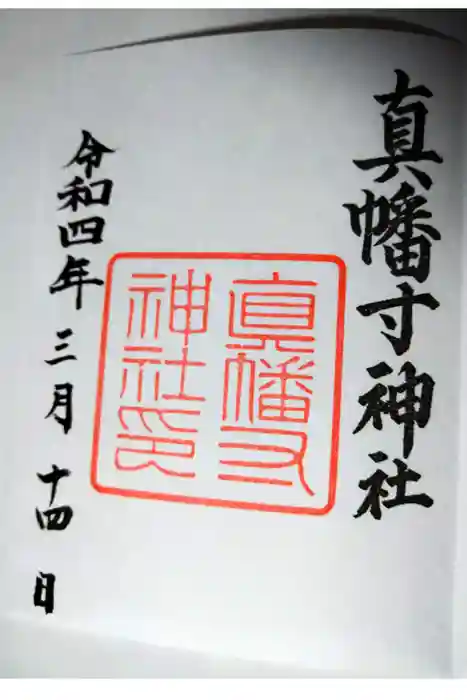 真幡寸神社
真幡寸
神社印
令和四年三月十四日